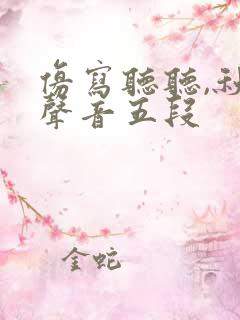 傷寫聽聽,
聲香五段
金蛇